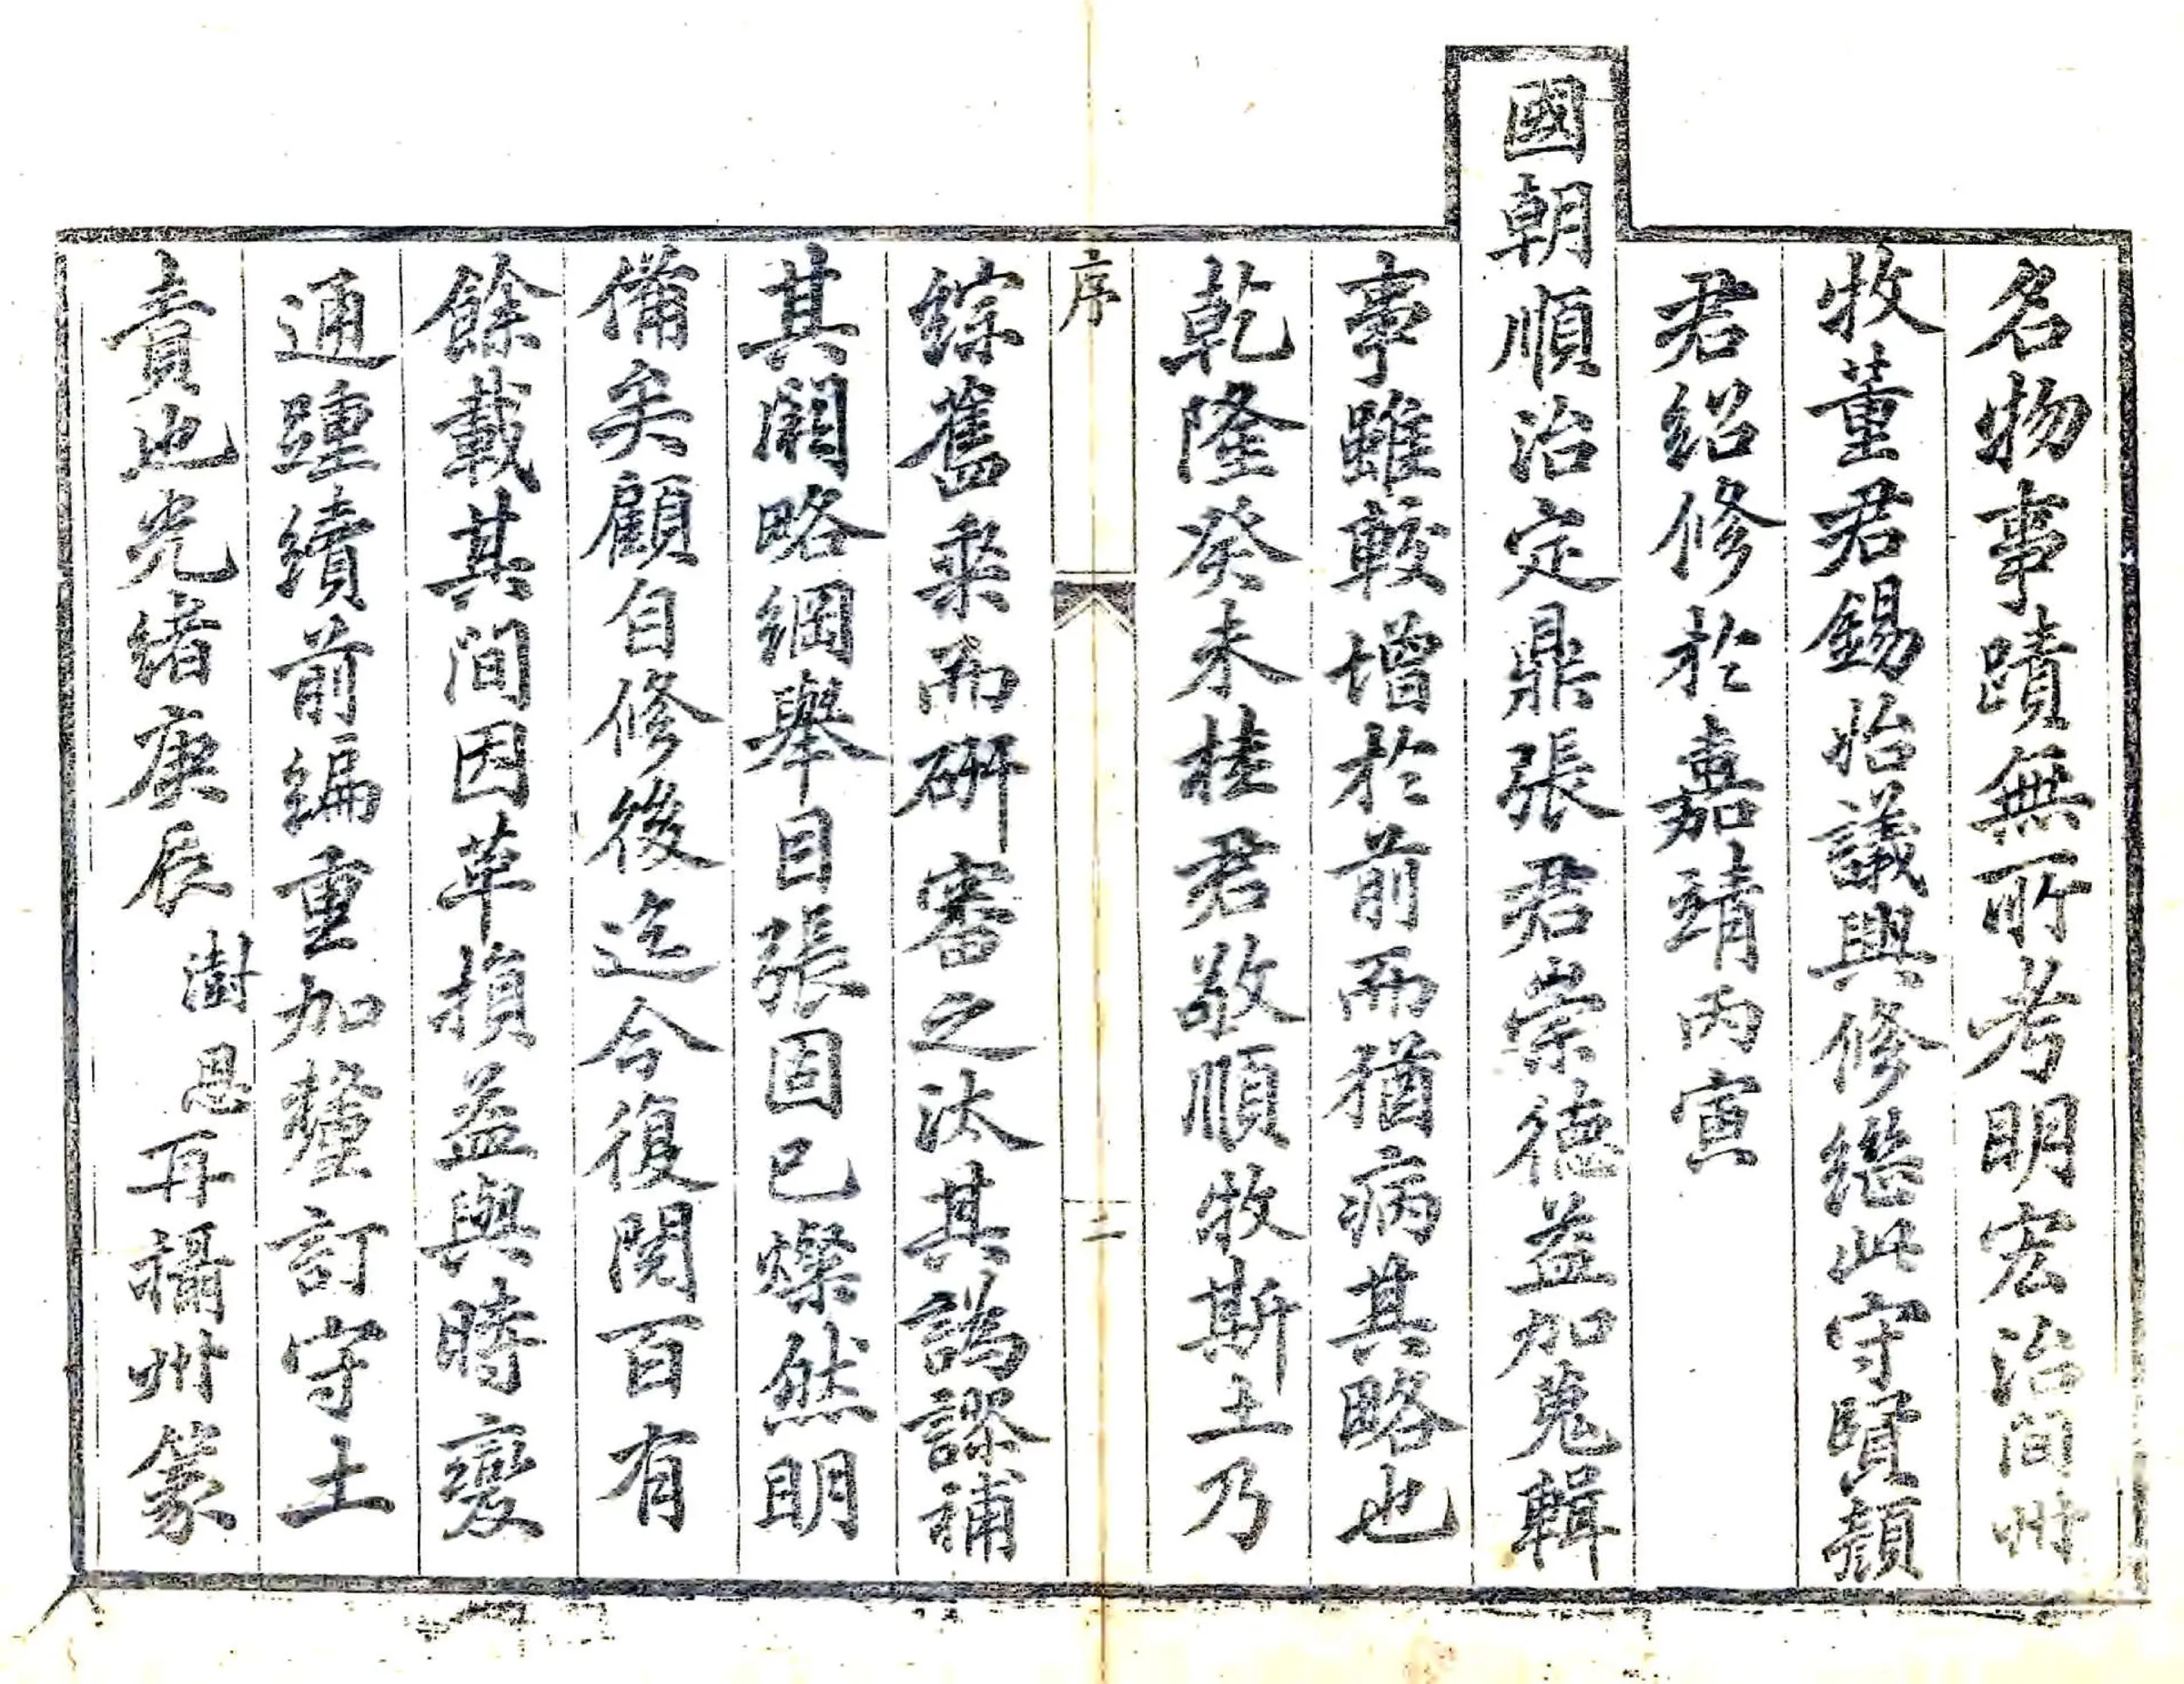 名物事蹟無所考明宏治間州
牧董君錫始議興修繼此守賢顏
君紹修於嘉靖丙寅
國朝順治定鼎張君崇德益加蒐輯
事雖較增於前而猶病其略也
乾隆癸未桂君敬順牧斯土乃
序
二
綜舊乘而研審之汰其譌謬補
其闕略綱舉目張固已燦然明
備矣顧自修後迄今復閱百有
餘載其間因革損益與時變
通踵續前編重加釐訂守土
責也光緒庚辰澍恩再攝州篆